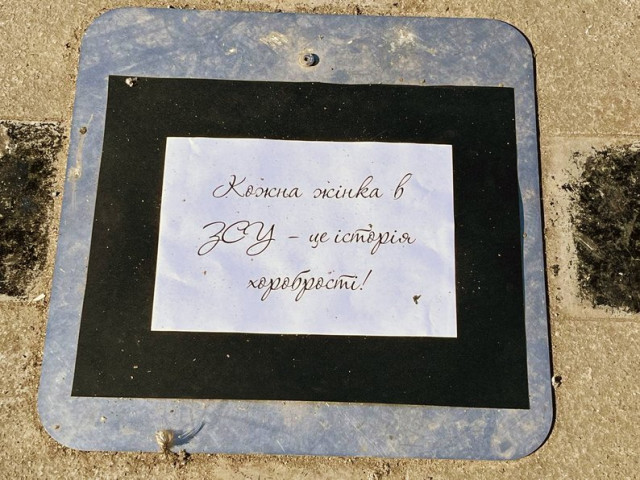 Кожна жінка в
ЗСУ – це історія
хоробрості!